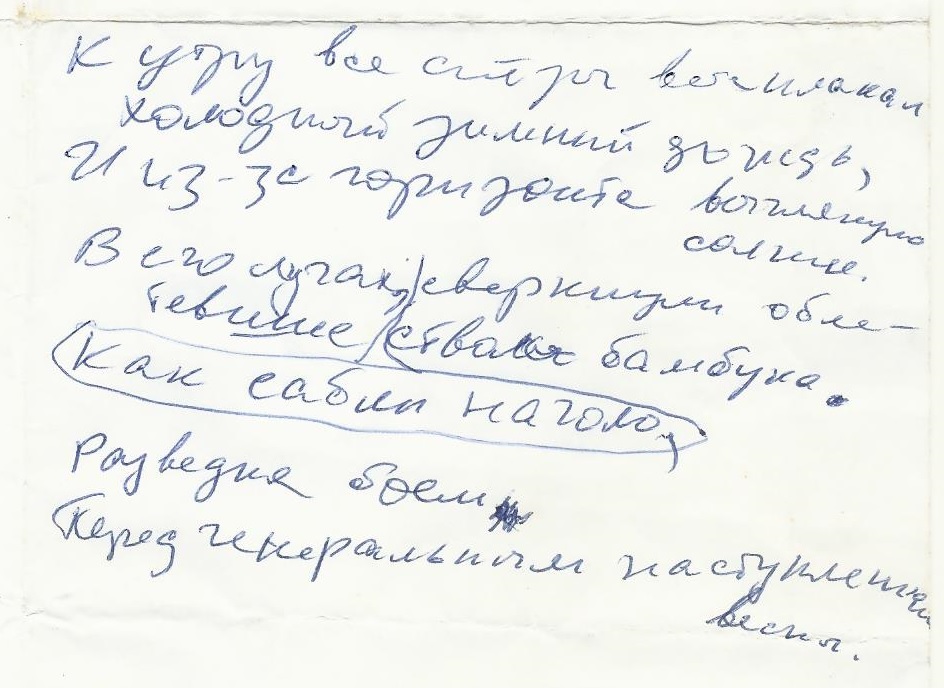 К утру все выплакал
холодный зимний дождь,
И из-за горизонта выглянуло
солнце.
В его лучах, сверкнули обле-
тевшие стволы бамбука.
Как сабли наголо,
Разведка боем
Перед генеральным наступлением
весны.